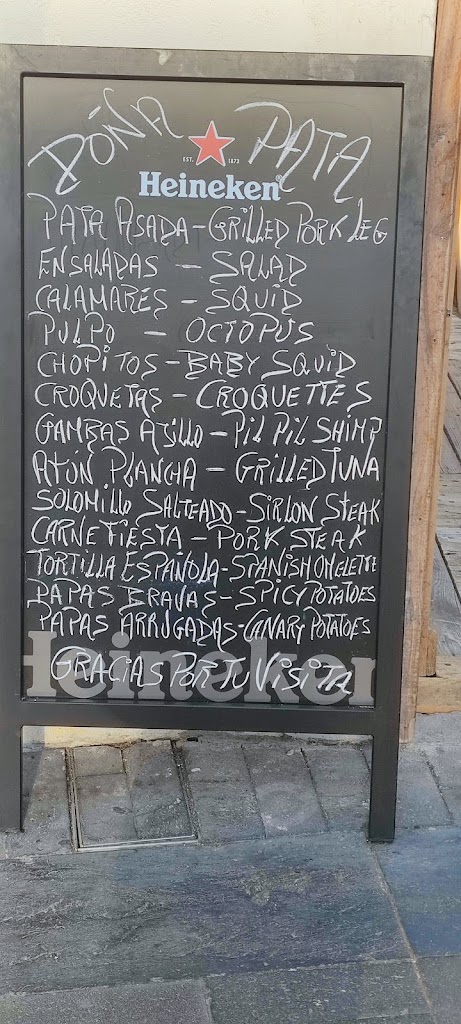 DOÑA PATA
EST. 1873
Heineken
PATA ASADA - GRILLED PORK LEG
ENSALADAS - SALAD
CALAMARES - SQUID
PULPO - OCTOPUS
CHOPITOS - BABY SQUID
CROQUETAS - CROQUETTES
GAMBAS AJILLO - PIL PIL SHIMP
ATÚN PLANCHA - GRILLED TUNA
SOLOMILLO SALTEADO - SIRLON STEAK
CARNE FIESTA - PORK STEAK
TORTILLA ESPAÑOLA - SPANISH OMELETTE
PAPAS BRAVAS - SPICY POTATOES
PAPAS ARRUGADAS - CANARY POTATOES
GRACIAS POR TU VISITA
Heineken